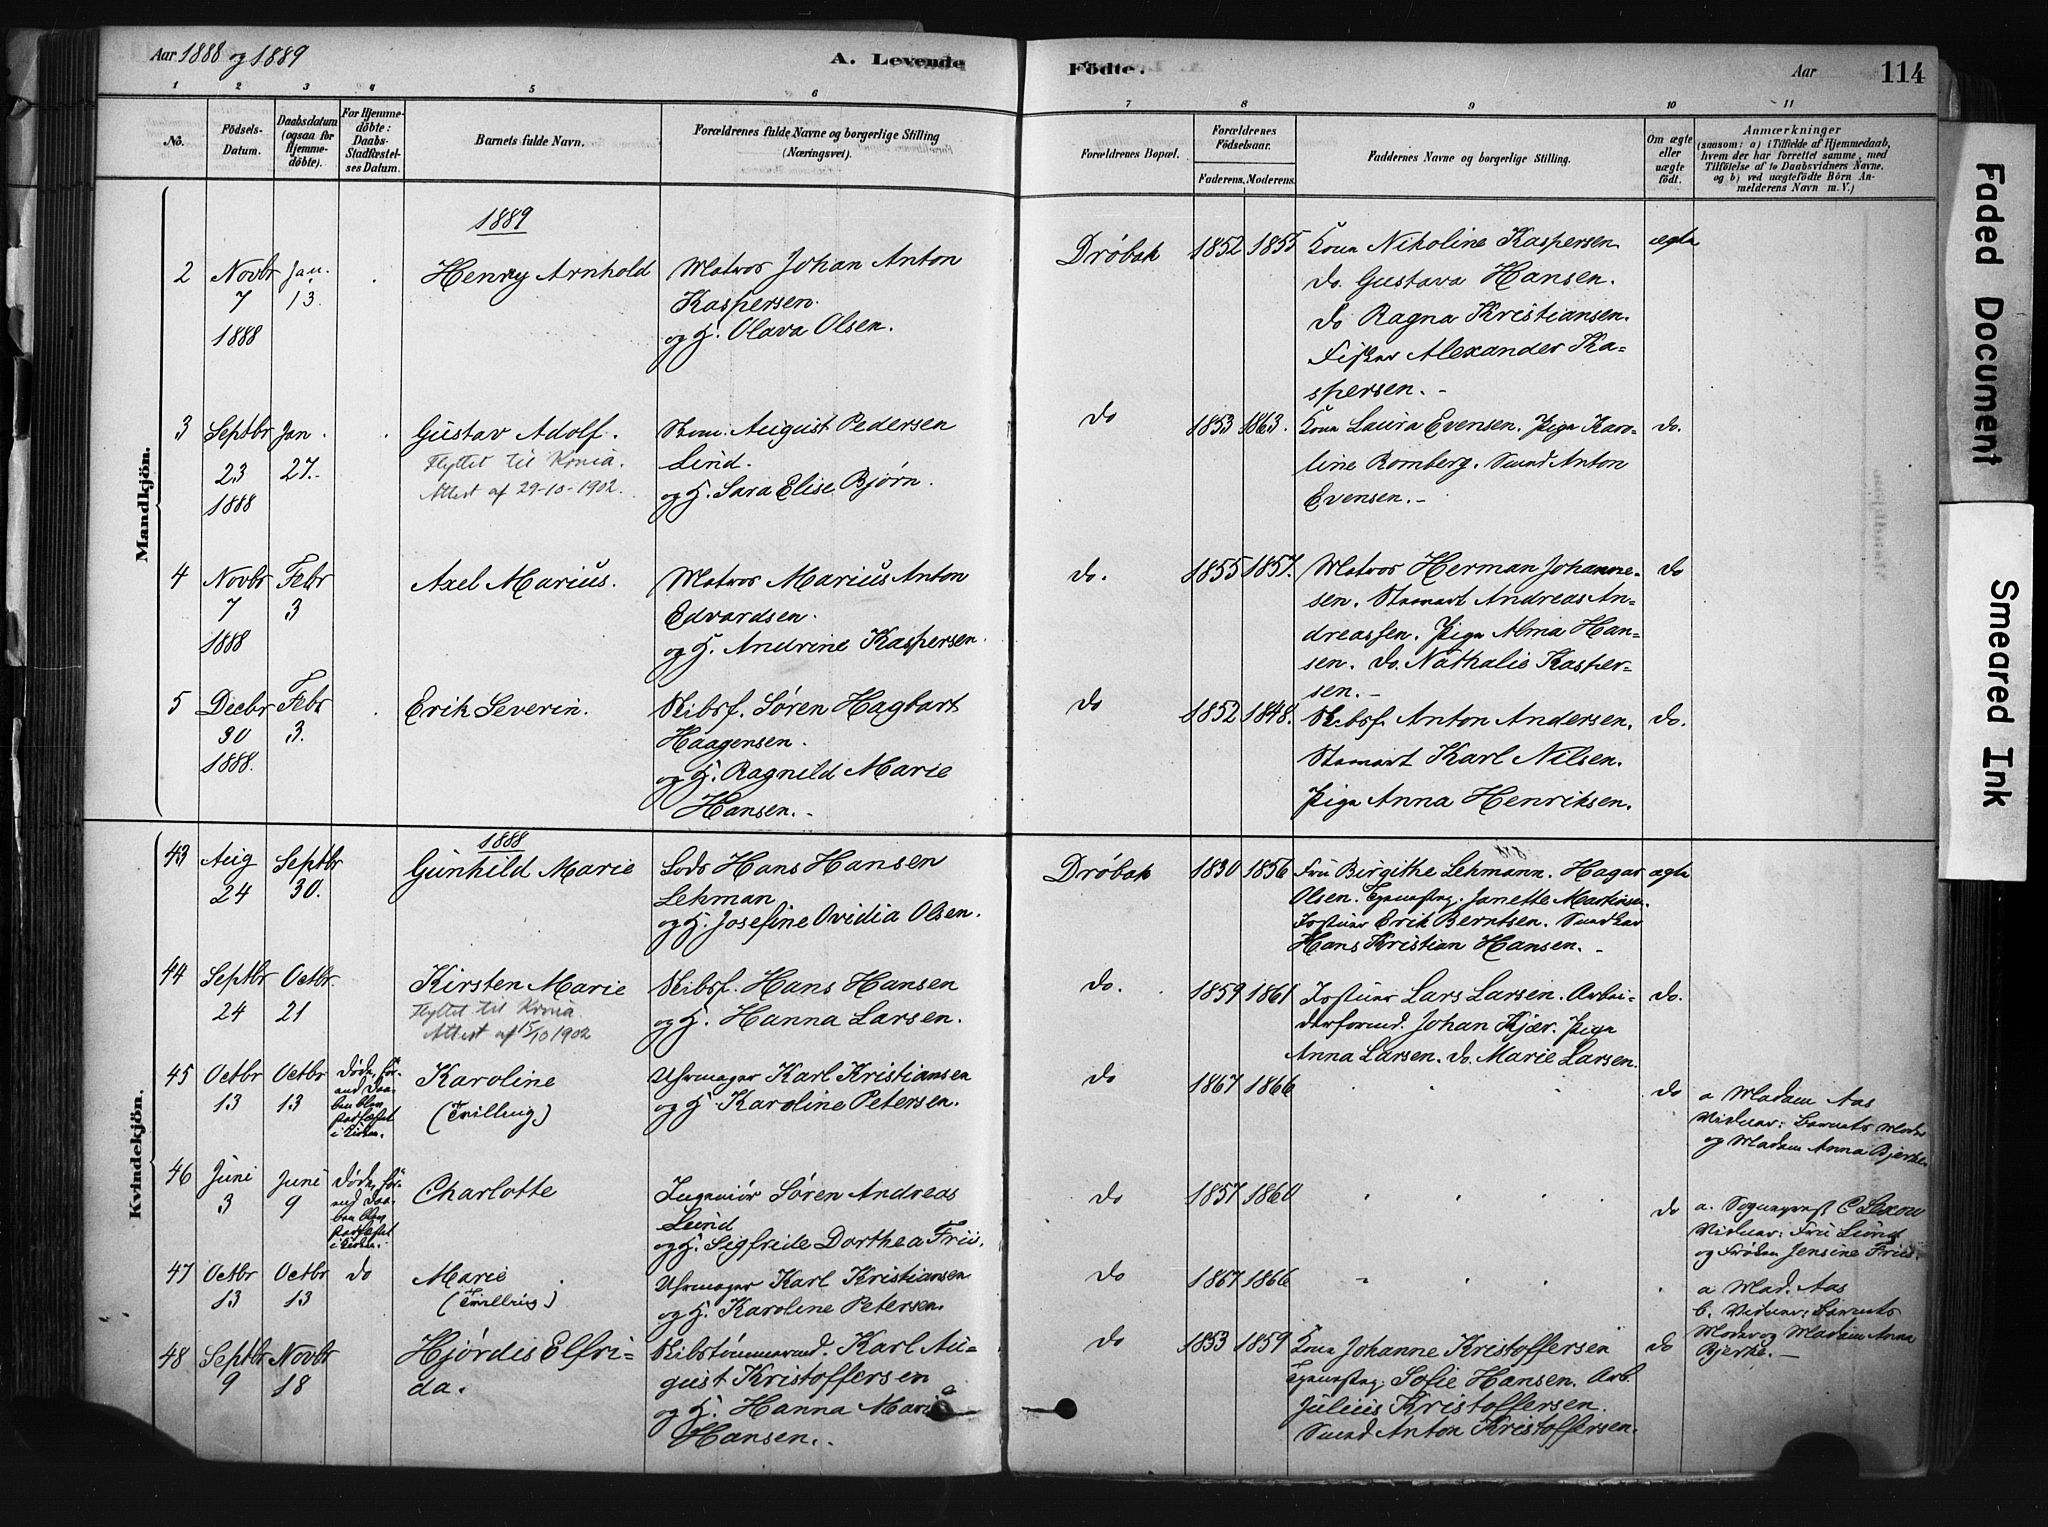 Aar 1888 og 1889
A. Levende
Födte.
Aar
114
1 2 3 4 5 6 7 8 9 10 11
No.
Födsels-Datum.
Daabsdatum (ogsaa for Hjemme-döbte).
For Hjemme-döbte: Daabs-Stadfæstel-ses Datum.
Barnets fulde Navn.
Forældrenes fulde Navne og borgerlige Stilling (Næringsvei).
Forældrenes Bopæl.
Forældrenes Födselsaar.
Faderens. Moderens.
Faddernes Navne og borgerlige Stilling.
Om ægte eller uægte födt.
Anmærkninger
(saasom: a) i Tilfælde af Hjemmedaab, hvem der har forrettet samme, med Tilföielse af to Daabsvidners Navne, og b) ved uægtefödte Börn An-melderens Navn m. V.)
Mandkjön.
1889
2 Novbr 7 1888
Jan. 13
Henry Arnhold
Matros Johan Anton
Kaspersen.
og H. Olava Olsen.
Drøbak 1852 1855
Kona Nikoline Kaspersen.
do. Gustava Hansen.
do Ragna Kristiansen.
Fisker Alexander Ka-
spersen. -
ægte
3 Septbr 23 1888
Jan. 27.
Gustav Adolf.
Flyttet til Krnia.
Attest af 29-10-1902.
Stm. August Pedersen
Lund.
og H. Sara Elise Bjørn.
do 1853 1863.
Kona Laura Evensen. Pige Karo-
line Romberg. Smed Anton
Evensen. -
do.
4 Novbr 7 1888
Febr 3
Axel Marius.
Matros Marius Anton
Edvardsen.
og H. Andrine Kaspersen.
do. 1855 1857.
Matros Herman Johanne-
sen. Stuart Andreas An-
dreassen. Pige Alma Han-
sen. do. Nathalie Kasper-
sen. -
do
5 Decbr 30 1888.
Febr 3.
Erik Severin.
Skibsf. Søren Hagbart
Haagensen.
og H. Ragnild Marie
Hansen. -
do 1852 1848.
Skibsf. Anton Andersen.
Stuart Karl Nilsen.
Pige Anna Henriksen.
do.
Kvindekjön.
1888
43 Aug 24
Septbr 30.
Gunhild Marie
Lods Hans Hansen
Lehman
og H. Josefine Ovidia Olsen.
Drøbak 1830 1856
Fru Birgithe Lehmann. Hagar
Olsen. Tjenestep. Janette Martinsen.
Erik Berntsen.
Hans Kristian Hansen. -
ægte
44 Septbr 24
Octbr. 21
Kirsten Marie
Flyttet til Krnia.
Attest af 15/10 1902
Skibsf. Hans Hansen
og H. Hanna Larsen.
do. 1859 1861
Lars Larsen. Arbei-
derformd. Johan Kjær. Pige
Anna Larsen. do. Marie Larsen.
do.
45 Octbr 13
Octbr 13
Døde, før-
end Daa-
ben blev
stadfæstet
i Kirken.
Karoline
(Tvilling)
Uhrmager Karl Kristiansen
og H. Karoline Petersen.
do 1867 1866
do
a Madam Aas
Vidner: Barnets Moder
og Madam Anna Bjerke
46 Juni 3
Juni 9
Døde, før-
end Daa-
ben blev
stadfæstet
i Kirken.
Charlotte
Ingeniør Søren Andreas
Lund
og H. Sigfride Dorthea Friis.
do 1857 1860
do
a. Sognepræst C Lexow
Vidner: Fru Lund
og Frøken Jensine Friis.
47 Octbr 13
Octbr 13
do
Marie
(Tvilling)
Uhrmager Karl Kristiansen
og H. Karoline Petersen.
do 1867 1866
a Mad. Aas
b. Vidner: Barnets
Moder og Madam Anna
Bjerke. -
48 Septbr 9
Novbr 18
Hjørdis Elfri-
da.
Skibstømmermd. Karl Au-
gust Kristoffersen
og H. Hanna Marie
Hansen.
do 1853 1859
Kona Johanne Kristoffersen
Tjenestep. Sofie Hansen. Arb.
Julius Kristoffersen.
Smed Anton Kristoffersen.
do
Faded Document
Smeared Ink